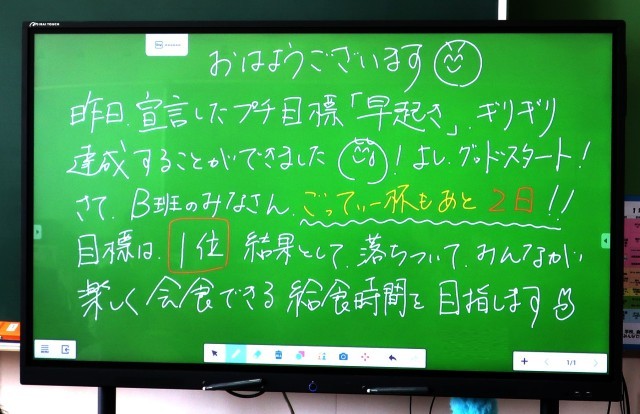 おはようございます
昨日、宣言したプチ目標「早起き」、ギリギリ
達成することができました！よし、グッドスタート！
さて、B班のみなさん、ごってぃ一杯もあと2日!!
目標は、1位 結果として、落ちついて、みんなが
楽しく会食できる給食時間を目指します
1/1